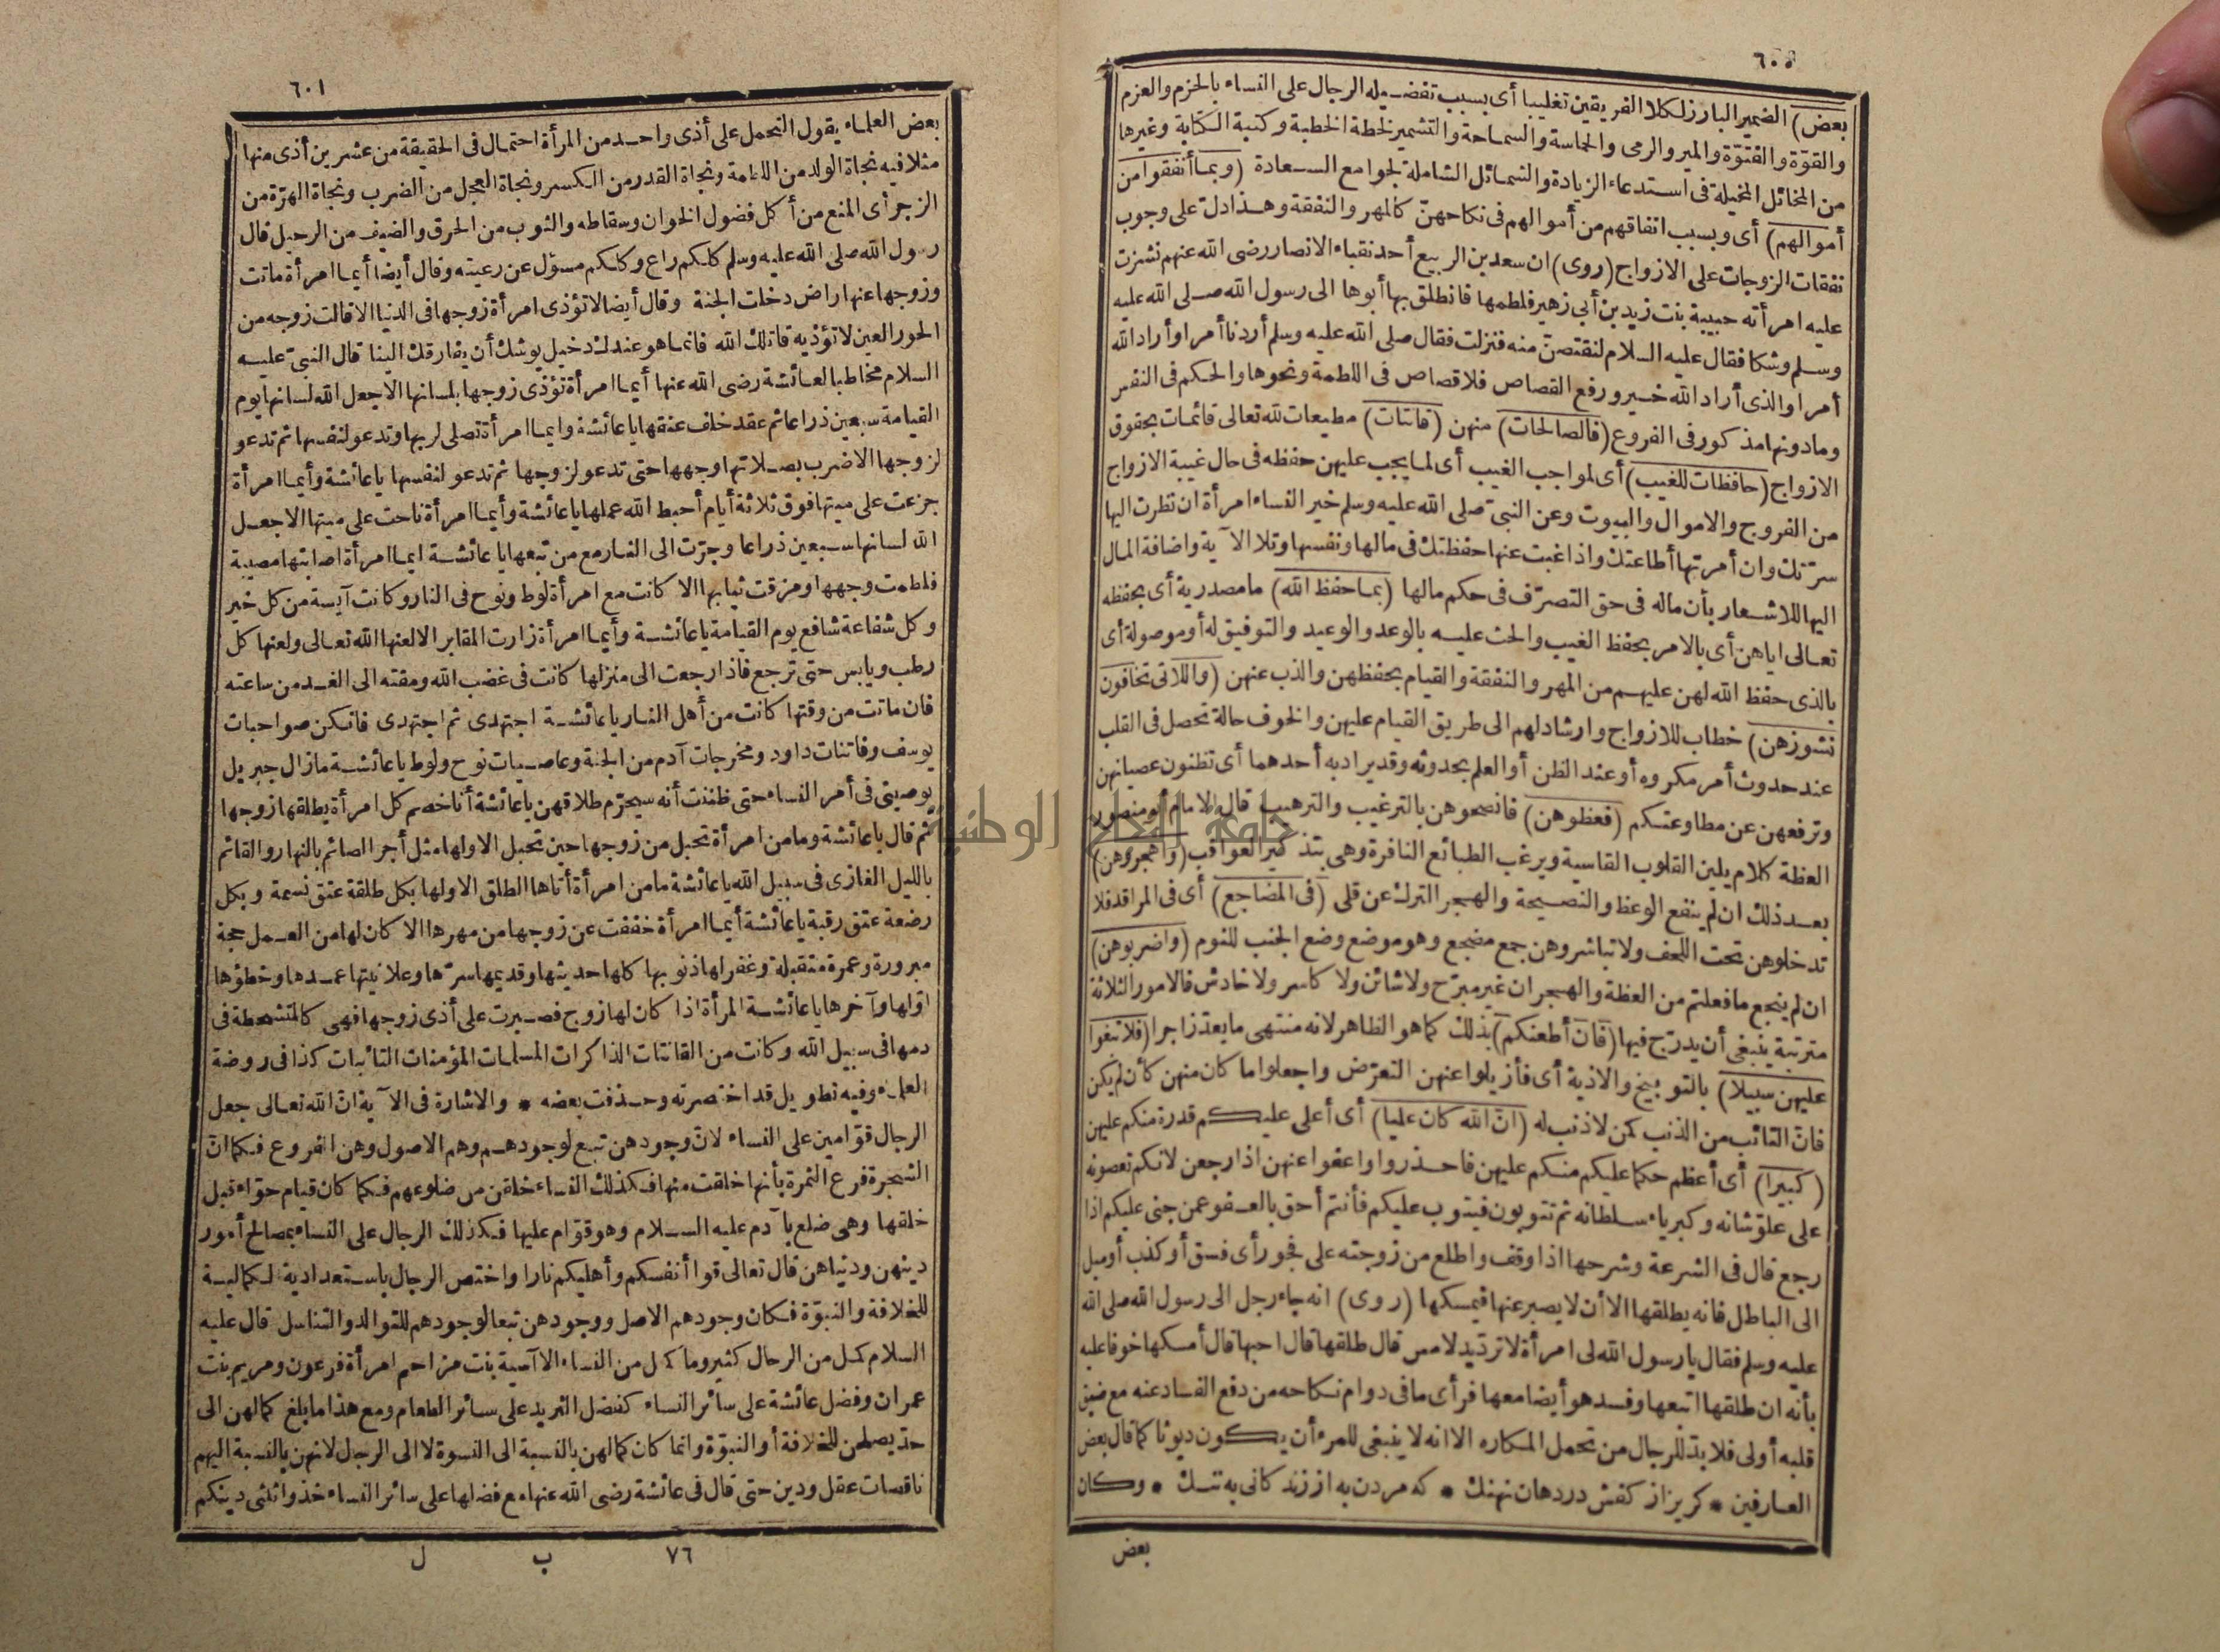 ٦٠٠
بعض) الضمير البارز لكلا الفريقين تغليبا أى بسبب تفضيله الرجال على النساء بالحزم والعزم
والقوّة والفتوّة والمير والرمى والحماسة والسماحة والتشمير لخطة الخطبة وكتبة الكتابة وغيرها
من المخائل المخيلة فى استدعاء الزيادة والشمائل الشاملة لجوامع السعادة (وبما أنفقوا من
أموالهم) أى وبسبب انفاقهم من أموالهم فى نكاحهنّ كالمهر والنفقة وهذا دلّ على وجوب
نفقات الزوجات على الازواج (روى) ان سعد بن الربيع أحد نقباء الانصار رضى الله عنهم نشزت
عليه امرأته حبيبة بنت زيد بن أبى زهير فلطمها فانطلق بها أبوها الى رسول الله صلى الله عليه
وسلم وشكا فقال عليه السلام لتقتصنّ منه فنزلت فقال صلى الله عليه وسلم أردنا أمرا وأراد الله
أمرا والذى أراد الله خير ورفع القصاص فلا قصاص فى اللطمة ونحوها والحكم فى النفس
ومادونها مذكور فى الفروع (فالصالحات) منهن (قانتات) مطيعات لله تعالى قائمات بحقوق
الازواج (حافظات للغيب) أى لمواجب الغيب أى لما يجب عليهن حفظه فى حال غيبة الازواج
من الفروج والاموال والبيوت وعن النبىّ صلى الله عليه وسلم خير النساء امرأة ان نظرت اليها
سرّتك وان أمرتها أطاعتك واذا غبت عنها حفظتك فى مالها ونفسها وتلا الآية واضافة المال
اليها للاشعار بأن ماله فى حق التصرّف فى حكم مالها (بما حفظ الله) ما مصدرية أى بحفظه
تعالى اياهن أى بالامر بحفظ الغيب والحث عليه بالوعد والوعيد والتوفيق له أو موصولة أى
بالذى حفظ الله لهن عليهم من المهر والنفقة والقيام بحفظهن والذب عنهن (واللاتى تخافون
نشوزهن) خطاب للازواج وارشاد لهم الى طريق القيام عليهن والخوف حالة تحصل فى القلب
عند حدوث أمر مكروه أو عند الظن أو العلم بحدوثه وقد يراد به أحدهما أى تظنون عصيانهن
وترفعهن عن مطاوعتكم (فعظوهن) فانصحوهن بالترغيب والترهيب قال الامام أبو منصور
العظة كلام يلين القلوب القاسية ويرغب الطبائع النافرة وهى بتذكير العواقب (واهجروهن)
بعد ذلك ان لم ينفع الوعظ والنصيحة والهجر الترك عن قلى (فى المضاجع) أى فى المراقد فلا
تدخلوهن تحت اللحف ولا تباشروهن جمع مضجع وهو موضع وضع الجنب للنوم (واضربوهن)
ان لم ينجع ما فعلتم من العظة والهجران غير مبرّح ولا شائن ولا كاسر ولا خادش فالامور الثلاثة
مترتبة ينبغى أن يدرّج فيها (فان أطعنكم) بذلك كما هو الظاهر لانه منتهى ما يعدّ زاجرا (فلا تبغوا
عليهن سبيلا) بالتوبيخ والاذية أى فأزيلوا عنهن التعرّض واجعلوا ما كان منهن كأن لم يكن
فانّ التائب من الذنب كمن لا ذنب له (انّ الله كان عليا) أى أعلى عليكم قدرة منكم عليهن
(كبيرا) أى أعظم حكما عليكم منكم عليهن فاحذروا واعفوا عنهن اذا رجعن لانكم تعصونه
على علوّ شانه وكبرياء سلطانه ثم تتوبون فيتوب عليكم فأنتم أحق بالعفو عمن جنى عليكم اذا
رجع قال فى الشرعة وشرحها اذا وقف واطلع من زوجته على فجور أى فسق أو كذب أو ميل
الى الباطل فانه يطلقها الا أن لا يصبر عنها فيمسكها (روى) انه جاء رجل الى رسول الله صلى الله
عليه وسلم فقال يا رسول الله لى امرأة لا تردّ يد لامس قال طلقها قال احبها قال أمسكها خوفا عليه
بأنه ان طلقها اتبعها وفسد هو أيضا معها فرأى ما فى دوام نكاحه من دفع الفساد عنه مع ضيق
قلبه أولى فلا بدّ للرجال من تحمل المكاره الا انه لا ينبغى للمرء أن يكون ديوثا كما قال بعض
العارفين * كريز از كفش در دهان نهنك * كه مردن به از زندكانى به ننك * وكان
بعض
٦٠١
بعض العلماء يقول التحمل على أذى واحد من المرأة احتمال فى الحقيقة من عشرين أذى منها
مثلا فيه نجاة الولد من اللطمة ونجاة القدر من الكسر ونجاة العجل من الضرب ونجاة الهرّة من
الزجر أى المنع من أكل فضول الخوان وسقاطه والثوب من الحرق والضيف من الرحيل قال
رسول الله صلى الله عليه وسلم كلكم راع وكلكم مسؤل عن رعيته وقال أيضا أيما امرأة ماتت
وزوجها عنها راض دخلت الجنة وقال أيضا لا تؤذى امرأة زوجها فى الدنيا الا قالت زوجه من
الحور العين لا تؤذيه قاتلك الله فانما هو عندك دخيل يوشك أن يفارقك الينا قال النبىّ عليه
السلام مخاطبا لعائشة رضى الله عنها أيما امرأة تؤذى زوجها بلسانها الا جعل الله لسانها يوم
القيامة سبعين ذراعا ثم عقد خلف عنقها يا عائشة وايما امرأة تصلى لربها وتدعو لنفسها ثم تدعو
لزوجها الا ضرب بصلاتها وجهها حتى تدعو لزوجها ثم تدعو لنفسها يا عائشة وأيما امرأة
جزعت على ميتها فوق ثلاثة أيام أحبط الله عملها يا عائشة وأيما امرأة ناحت على ميتها الا جعل
الله لسانها سبعين ذراعا وجرّت الى النار مع من تبعها يا عائشة ايما امرأة اصابتها مصيبة
فلطمت وجهها ومزقت ثيابها الا كانت مع امرأة لوط ونوح فى النار وكانت آيسة من كل خير
وكل شفاعة شافع يوم القيامة يا عائشة وأيما امرأة زارت المقابر الا لعنها الله تعالى ولعنها كل
رطب ويابس حتى ترجع فاذا رجعت الى منزلها كانت فى غضب الله ومقته الى الغد من ساعته
فان ماتت من وقتها كانت من أهل النار يا عائشة اجتهدى ثم اجتهدى فانكن صواحبات
يوسف وفاتنات داود ومخرجات آدم من الجنة وعاصيات نوح ولوط يا عائشة ما زال جبريل
يوصينى فى أمر النساء حتى ظننت أنه سيحرّم طلاقهن يا عائشة أنا خصم كل امرأة يطلقها زوجها
ثم قال يا عائشة وما من امرأة تحبل من زوجها حين تحبل الا ولها مثل أجر الصائم بالنهار والقائم
بالليل الغازى فى سبيل الله يا عائشة ما من امرأة أتاها الطلق الا ولها بكل طلقة عتق نسمة وبكل
رضعة عتق رقبة يا عائشة أيما امرأة خففت عن زوجها من مهرها الا كان لها من العمل حجة
مبرورة وعمرة متقبلة وغفر لها ذنوبها كلها حديثها وقديمها سرّها وعلانيتها عمدها وخطؤها
اوّلها وآخرها يا عائشة المرأة اذا كان لها زوج فصبرت على أذى زوجها فهى كالمتشحطة فى
دمها فى سبيل الله وكانت من القانتات الذاكرات المسلمات المؤمنات التائبات كذا فى روضة
العلماء وفيه تطويل قد اختصرته وحذفت بعضه * والاشارة فى الآية انّ الله تعالى جعل
الرجال قوّامين على النساء لانّ وجودهن تبع لوجودهم وهم الاصول وهن الفروع فكما انّ
الشجرة فرع الثمرة بأنها خلقت منها فكذلك النساء خلقن من ضلوعهم فكما كان قيام حوّاء قبل
خلقها وهى ضلع بآدم عليه السلام وهو قوّام عليها فكذلك الرجال على النساء بمصالح أمور
دينهن ودنياهن قال تعالى قوا أنفسكم وأهليكم نارا واختص الرجال باستعدادية لكمالية
للخلافة والنبوّة فكان وجودهم الاصل ووجودهن تبعا لوجودهم للتوالد والتناسل قال عليه
السلام كمل من الرجال كثير وما كمل من النساء الا آسية بنت مزاحم امرأة فرعون ومريم بنت
عمران وفضل عائشة على سائر النساء كفضل الثريد على سائر الطعام ومع هذا ما بلغ كمالهن الى
حدّ يصلحن للخلافة أو النبوّة وانما كان كمالهن بالنسبة الى النسوة لا الى الرجال لانهن بالنسبة اليهم
ناقصات عقل ودين حتى قال فى عائشة رضى الله عنها مع فضلها على سائر النساء خذوا ثلثى دينكم
٧٦ ب ل
جامعة النجاح الوطنية